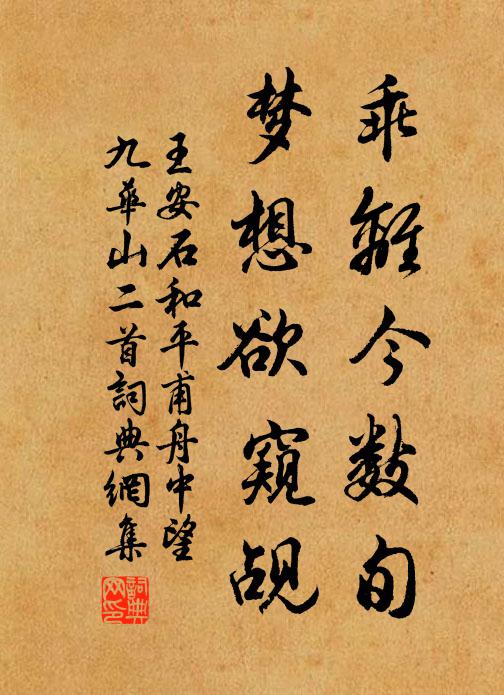 乖離今数旬
梦想欲窺觇
王安石和平甫舟中望
九華山二首詞典網集
詞典网印